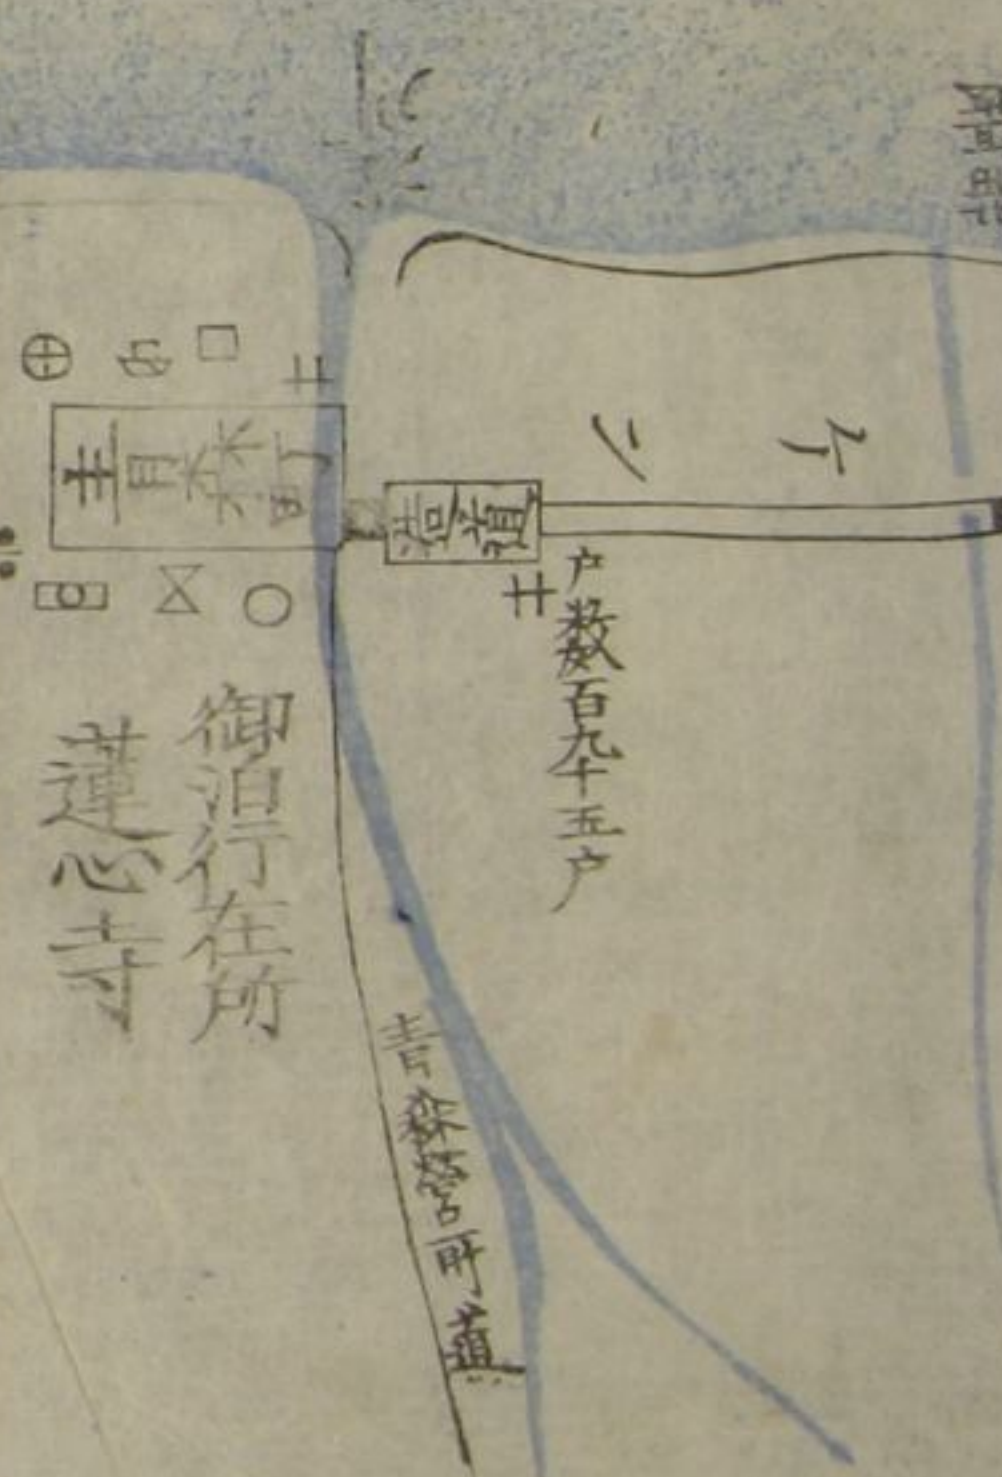 青森町
浩道
戸数百九十五戸
御泊行在所
蓮心寺
青森営所道